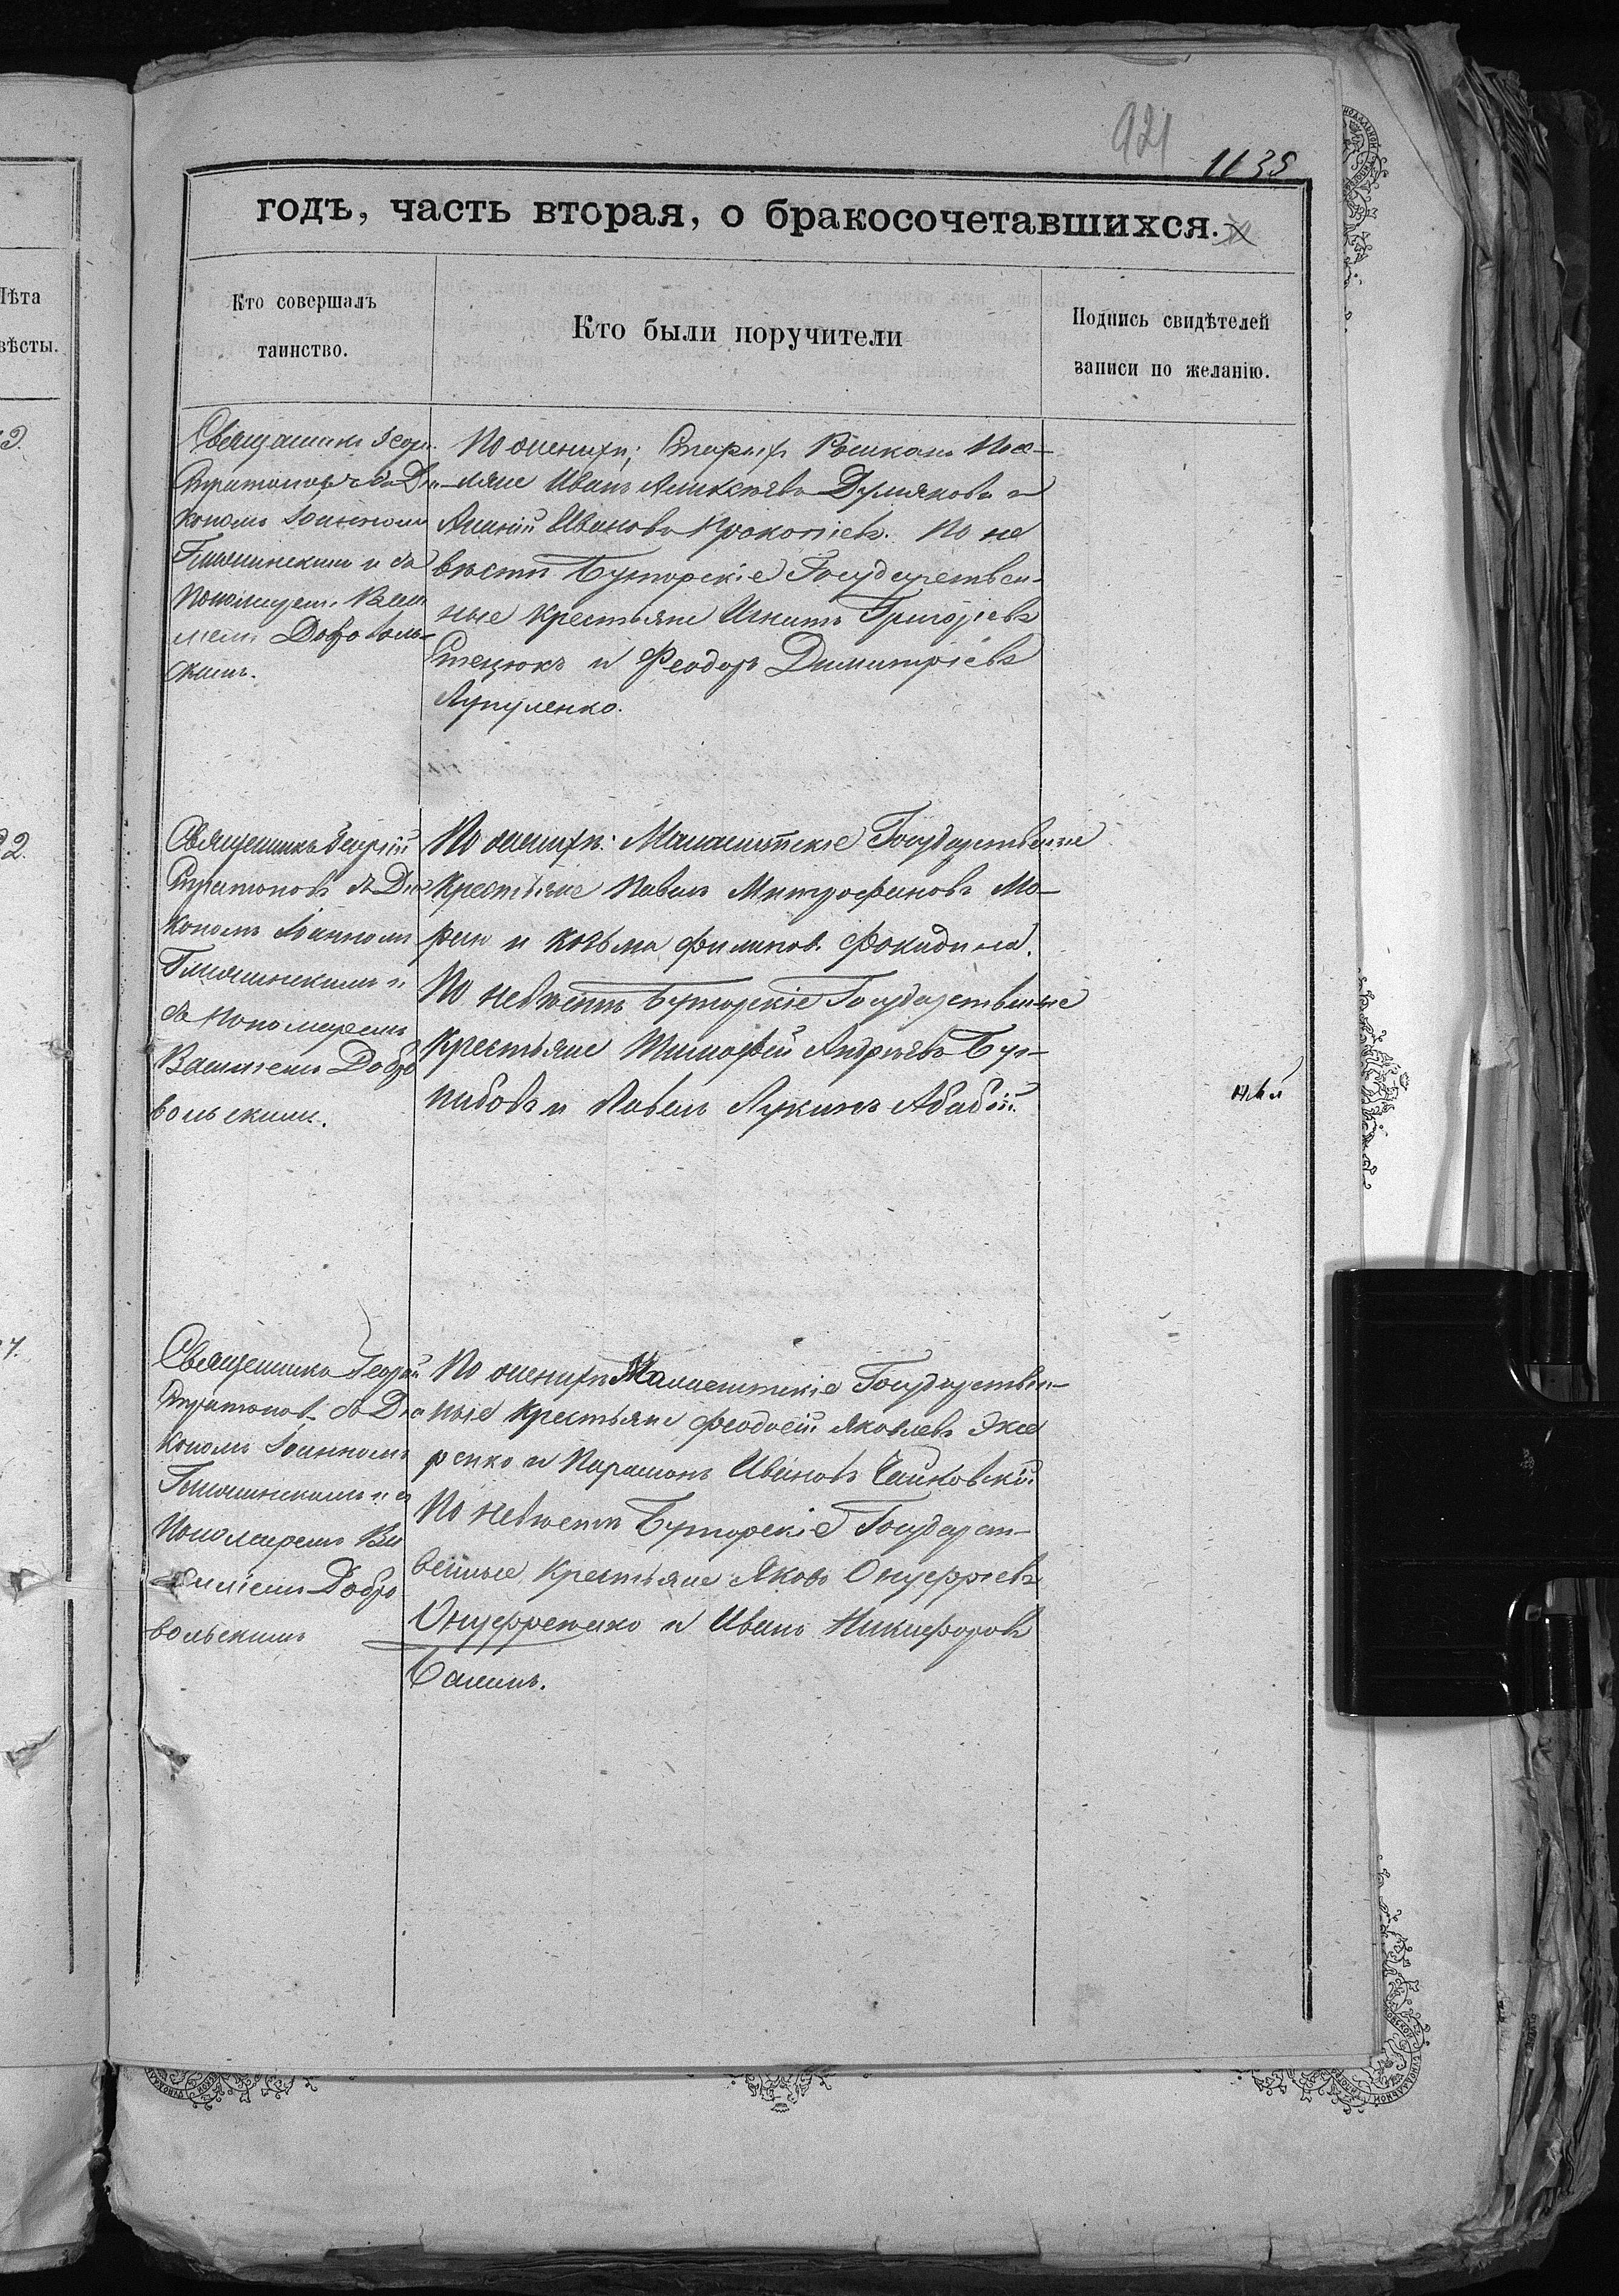 921
1135
годъ, часть вторая, о бракосочетавшихся.
Лѣта
вѣсты.
Кто совершалъ
таинство.
Кто были поручители
Подпись свидѣтелей
записи по желанію.
Священникъ Геор.
Стратоновъ съ Діа
кономъ Іоанномъ
и съ
Пономарем. Васи
лiемъ Доброволь-
скимъ.
По женихѣ: Старыхъ Рошканъ Посе-
ляне Иванъ Алексѣевъ и
Ананій Ивановъ Прокопіевъ. По не
вѣстѣ Буторскіе Государствен-
ные крестьяне Игнатъ Григоріевъ
Стецюкъ и Феодоръ Димитріевъ
Лупуленко.
Священникъ Георгій
Стратоновъ съ Діа
кономъ Іоанномъ
и
съ Пономаремъ
Василіемъ Добро
вольскимъ.
По женихѣ: Малаештскіе Государственные
Крестьяне Павелъ Митрофановъ Мо-
рик и Козьма Филипов. Фокидина.
По невѣстѣ Буторскіе Государственные
Крестьяне Тимофей Андреевъ
и Павелъ Лукинъ Абабій.
Священникъ Георгій
Стратонов. съ Діа
кономъ Іоанномъ
и съ
Пономаремъ Ва
силіемъ Добро
вольскимъ
По женихѣ Малаештскіе Государствен-
ные Крестьяне Феодосій Яковлевъ
и Парамонъ Ивановъ Чайковскій
По невѣстѣ Буторскіе Государст-
венные Крестьяне Яковъ Онуфріевъ
Онуфрейко и Иванъ Никифоровъ
Баланъ.